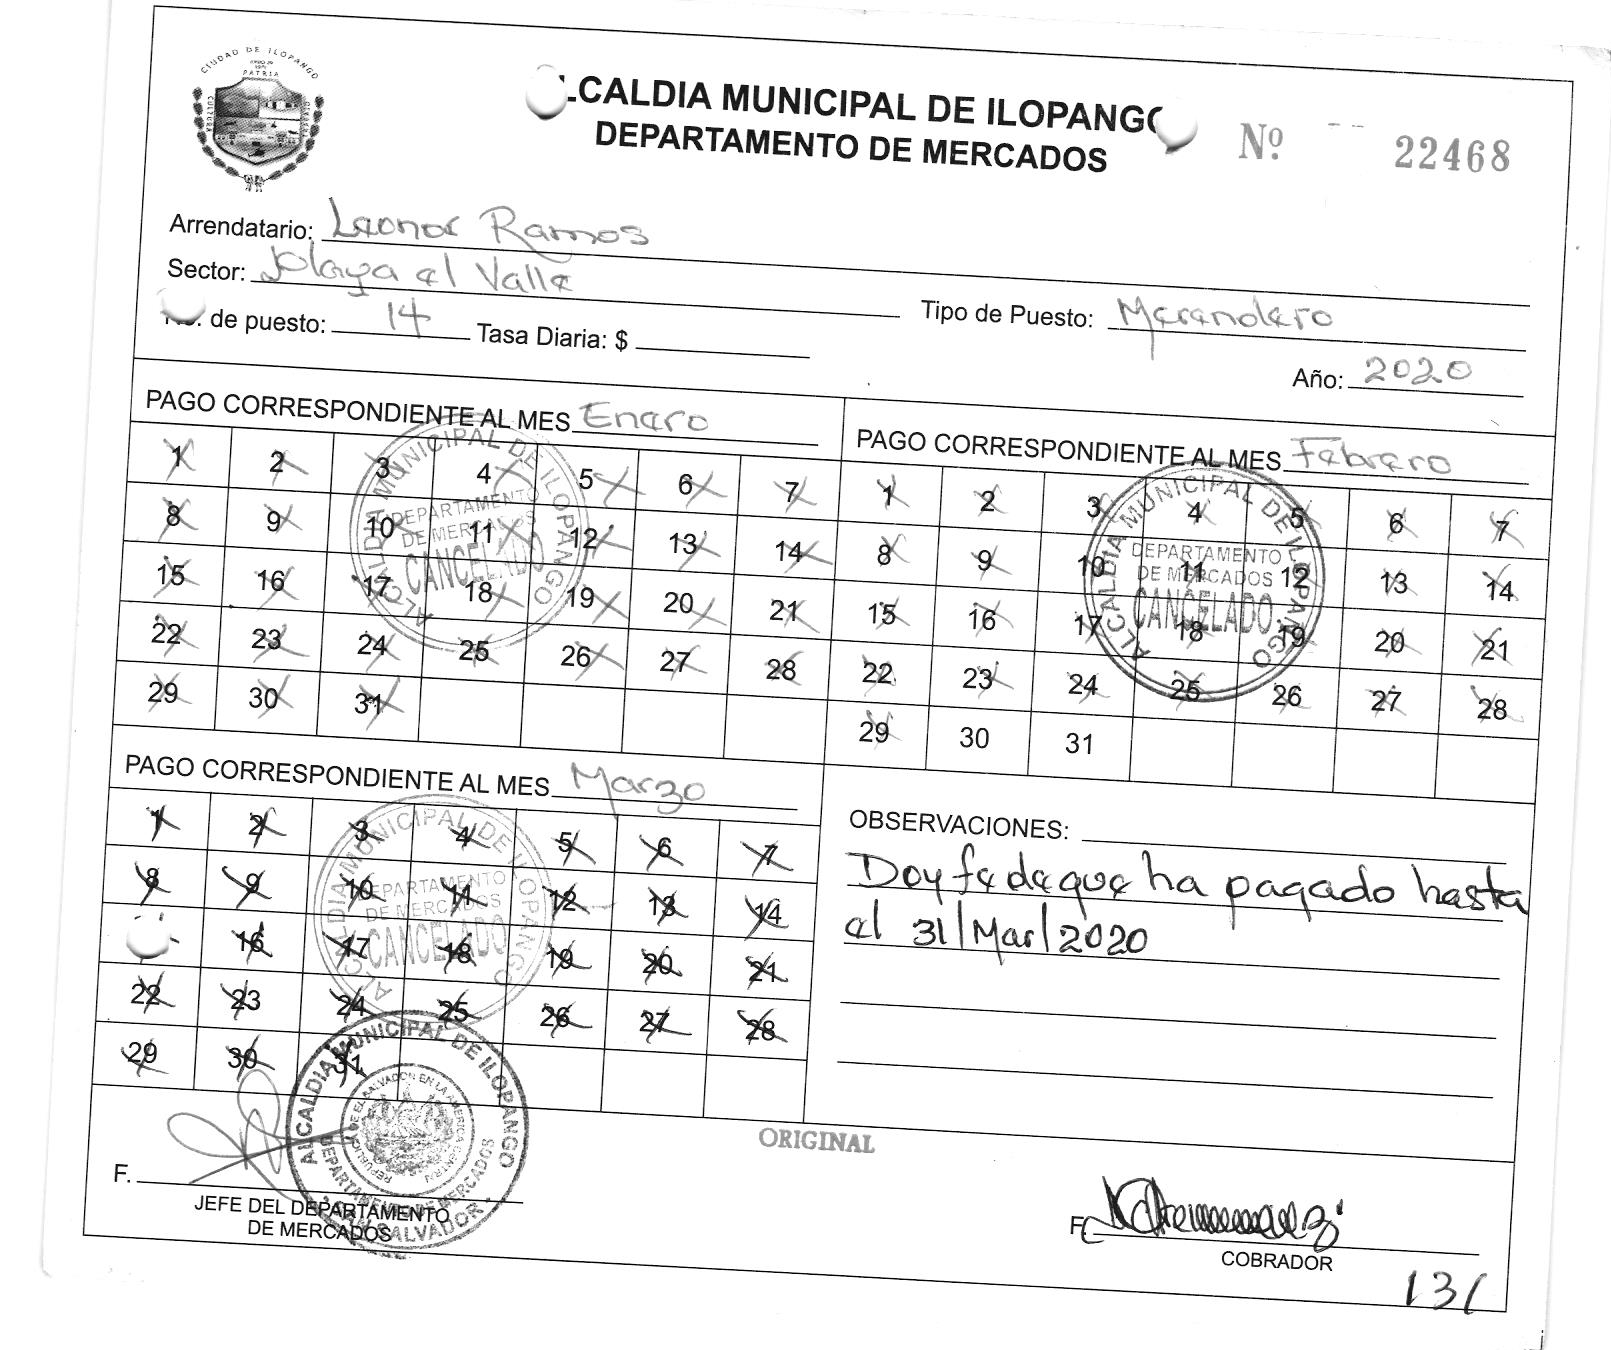 CIUDAD DE ILOPANGO
PATRIA
CULTURA
LCALDIA MUNICIPAL DE ILOPANGO
DEPARTAMENTO DE MERCADOS
Nº 22468
Arrendatario: Leonor Ramos
Sector: Playa el Valle
No. de puesto: 14 Tasa Diaria: $
Tipo de Puesto: Merendero
Año: 2020
PAGO CORRESPONDIENTE AL MES Enero
1 2 3 4 5 6 7
8 9 10 11 12 13 14
15 16 17 18 19 20 21
22 23 24 25 26 27 28
29 30 31
ALCALDIA MUNICIPAL DE ILOPANGO
DEPARTAMENTO
DE MERCADOS
CANCELADO
PAGO CORRESPONDIENTE AL MES Febrero
1 2 3 4 5 6 7
8 9 10 11 12 13 14
15 16 17 18 19 20 21
22 23 24 25 26 27 28
29 30 31
ALCALDIA MUNICIPAL DE ILOPANGO
DEPARTAMENTO
DE MERCADOS
CANCELADO
PAGO CORRESPONDIENTE AL MES Marzo
1 2 3 4 5 6 7
8 9 10 11 12 13 14
16 17 18 19 20 21
22 23 24 25 26 27 28
29 30 31
ALCALDIA MUNICIPAL DE ILOPANGO
DEPARTAMENTO
DE MERCADOS
CANCELADO
OBSERVACIONES:
Doy fe de que ha pagado hasta
el 31/Mar/2020
ORIGINAL
ALCALDIA MUNICIPAL DE ILOPANGO
REPUBLICA DE EL SALVADOR EN LA AMERICA CENTRAL
DEPARTAMENTO DE MERCADOS
SAN SALVADOR
F.
JEFE DEL DEPARTAMENTO
DE MERCADOS
F.
COBRADOR
131